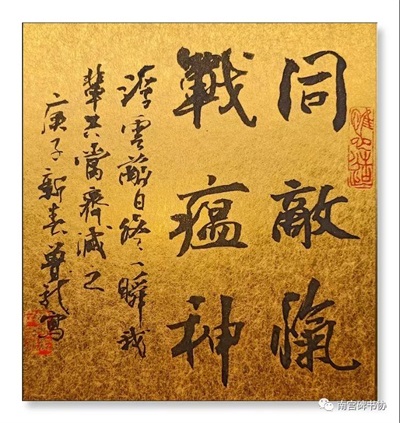 同敵愾
戰瘟神
浮雲蔽日終一瞬我
輩共當齊滅之
庚子新春寫
南宫碑书协